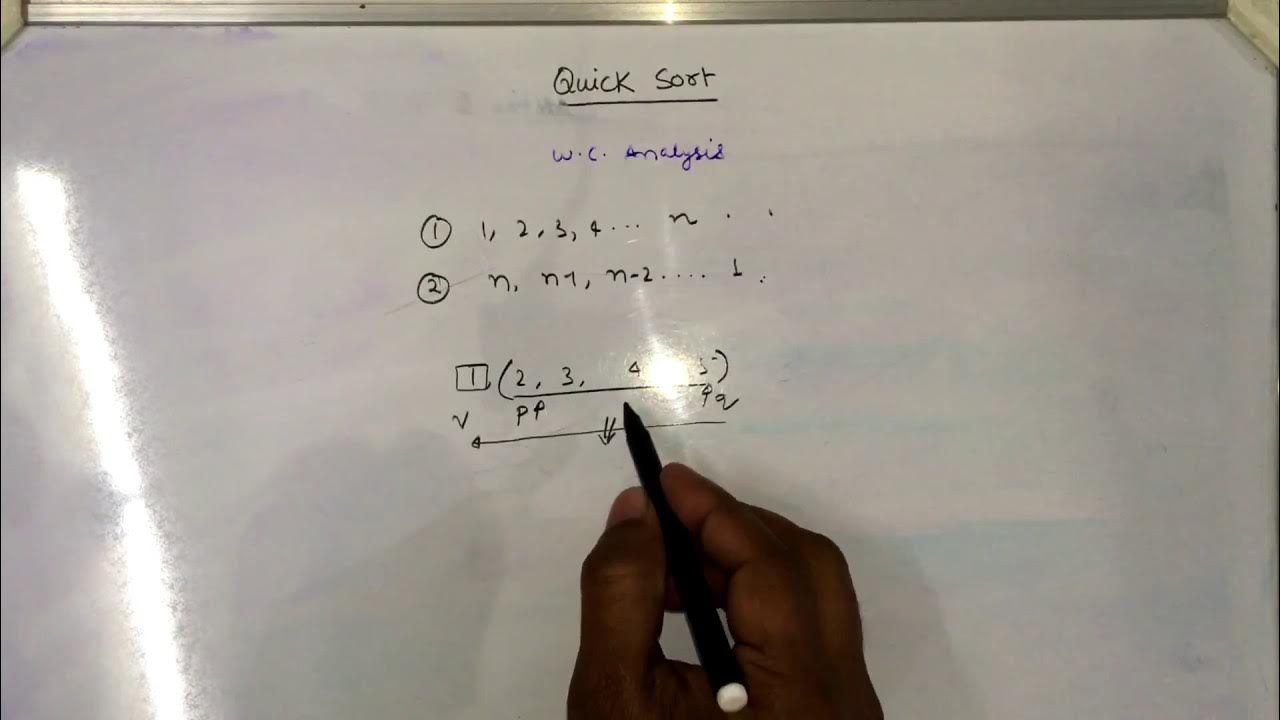 Quick Sort
W.C. Analysis
① 1, 2, 3, 4 ... n . .
② n, n-1, n-2 .... 1 .
1 (2, 3, 4 5)
PP q